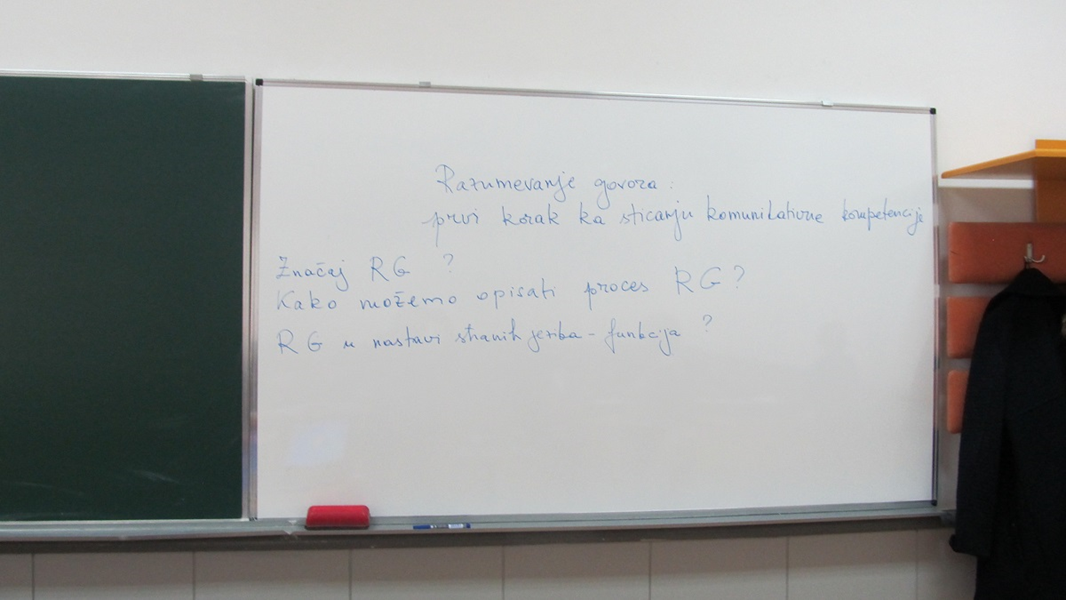 Razumevanje govora:
prvi korak ka sticanju komunikativne kompetencije
Značaj RG ?
Kako možemo opisati proces RG?
RG u nastavi stranih jezika - funkcija ?